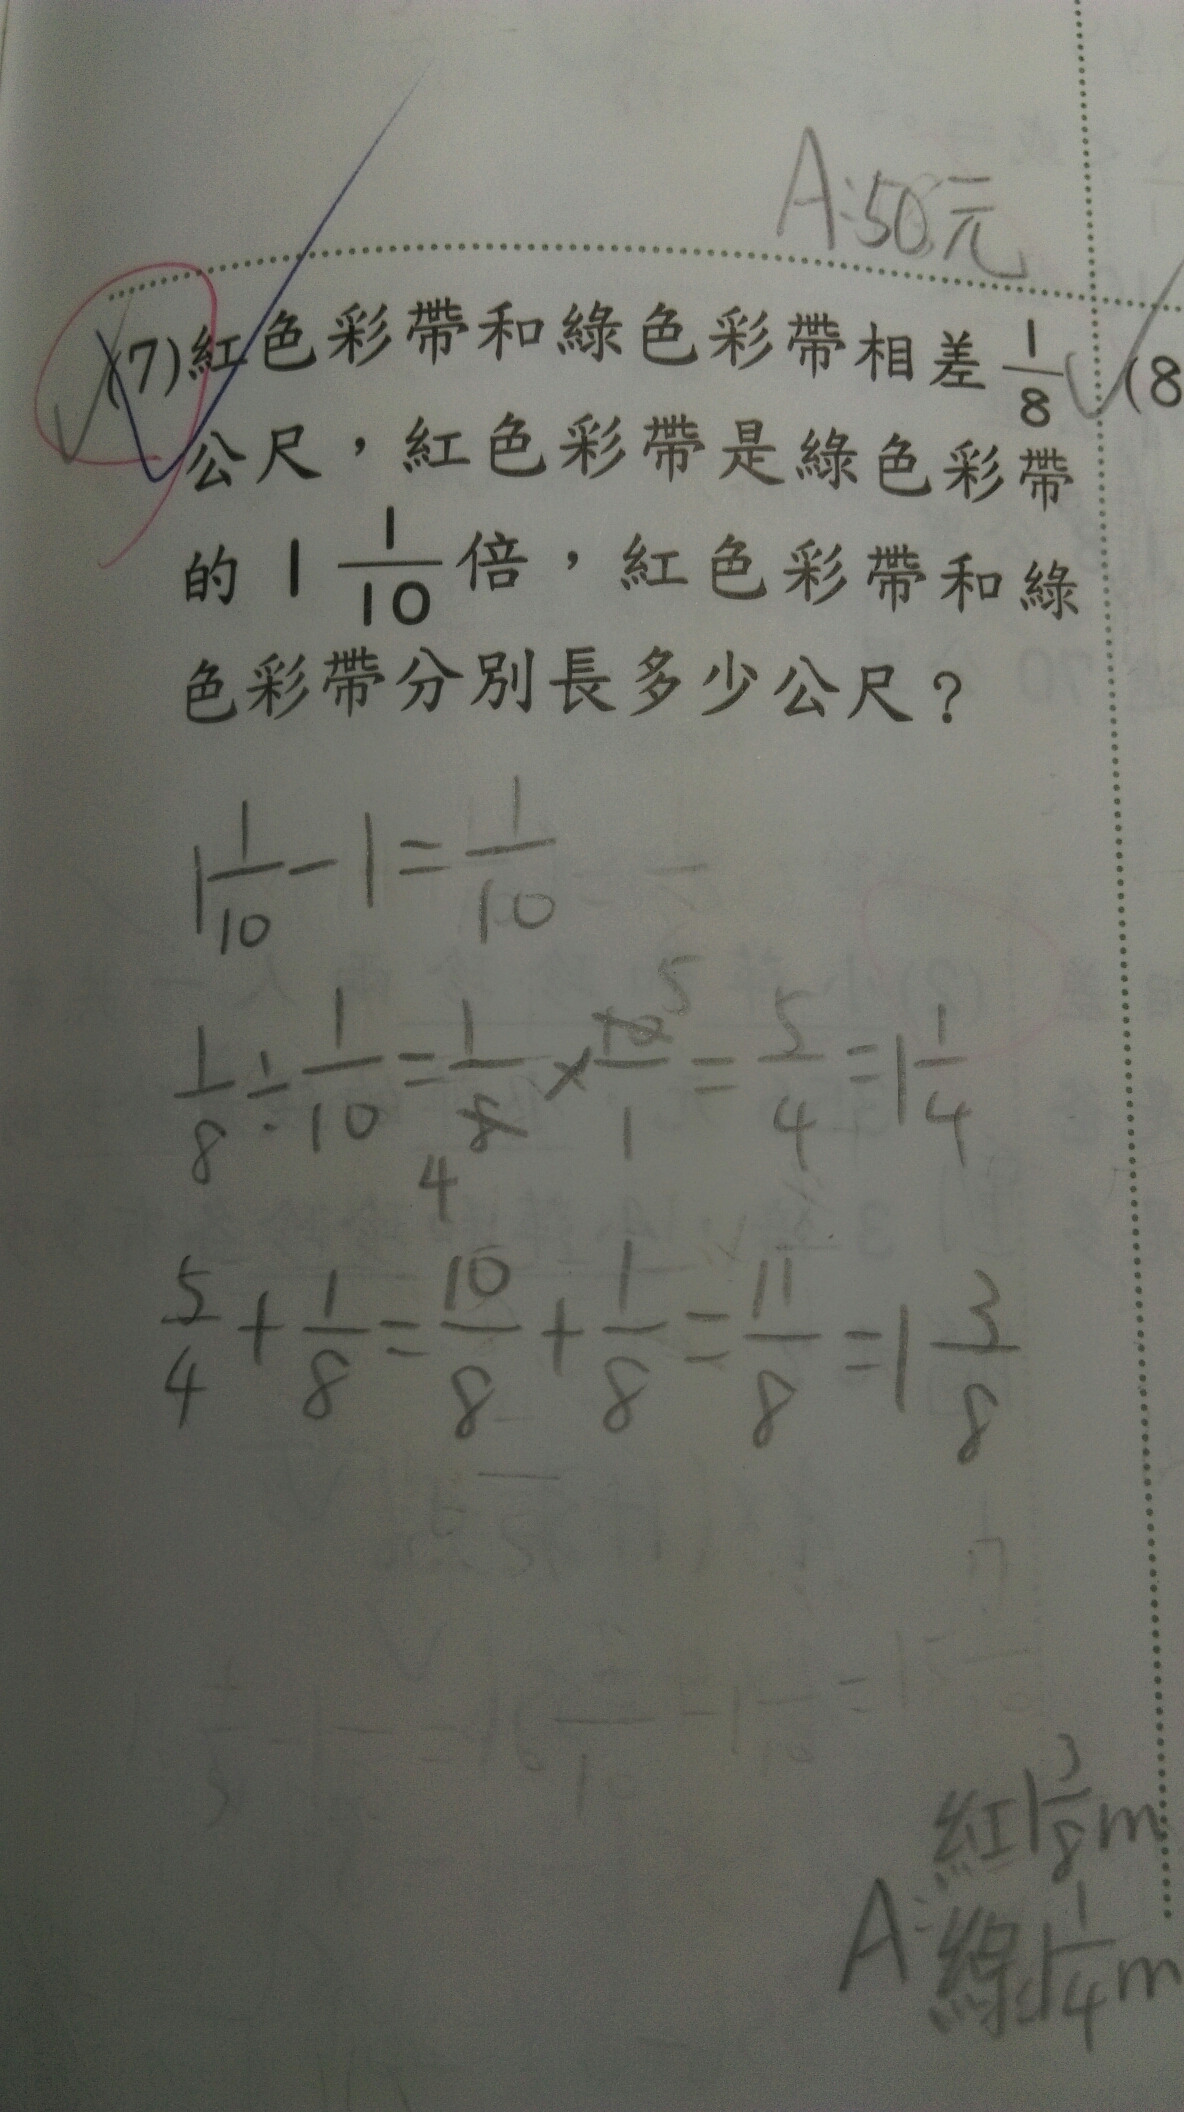 A:50元
(7)紅色彩帶和綠色彩帶相差1/8 (8
公尺，紅色彩帶是綠色彩帶
的 1 1/10 倍，紅色彩帶和綠
色彩帶分別長多少公尺？
1 1/10 - 1 = 1/10
1/8 ÷ 1/10 = 1/8 × 10/1 = 5/4 = 1 1/4
5
4
5/4 + 1/8 = 10/8 + 1/8 = 11/8 = 1 3/8
紅1 3/8 m
A:綠1 1/4 m